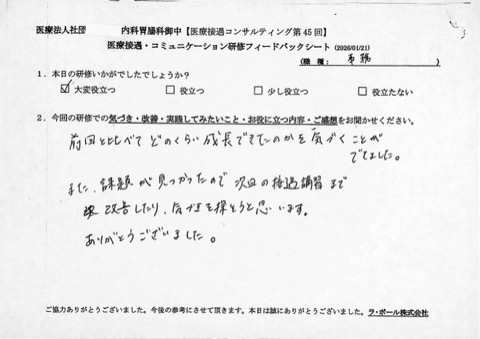 医療法人社団 内科胃腸科御中【医療接遇コンサルティング第45回】
医療接遇・コミュニケーション研修フィードバックシート (2026/01/21)
(職 種: 事務 )
1.本日の研修いかがでしたでしょうか?
☑ 大変役立つ □ 役立つ □ 少し役立つ □ 役立たない
2.今回の研修での気づき・改善・実践してみたいこと・お役に立つ内容・ご感想をお聞かせください。
前回と比べて どのくらい成長できたのかを気づくことが
でてました。
また、課題が見つかったので 次回の接遇講習まで
改善したり、気づきを探そうと思います。
ありがとうございました。
ご協力ありがとうございました。今後の参考にさせて頂きます。本日は誠にありがとうございました。 ラ・ポール株式会社